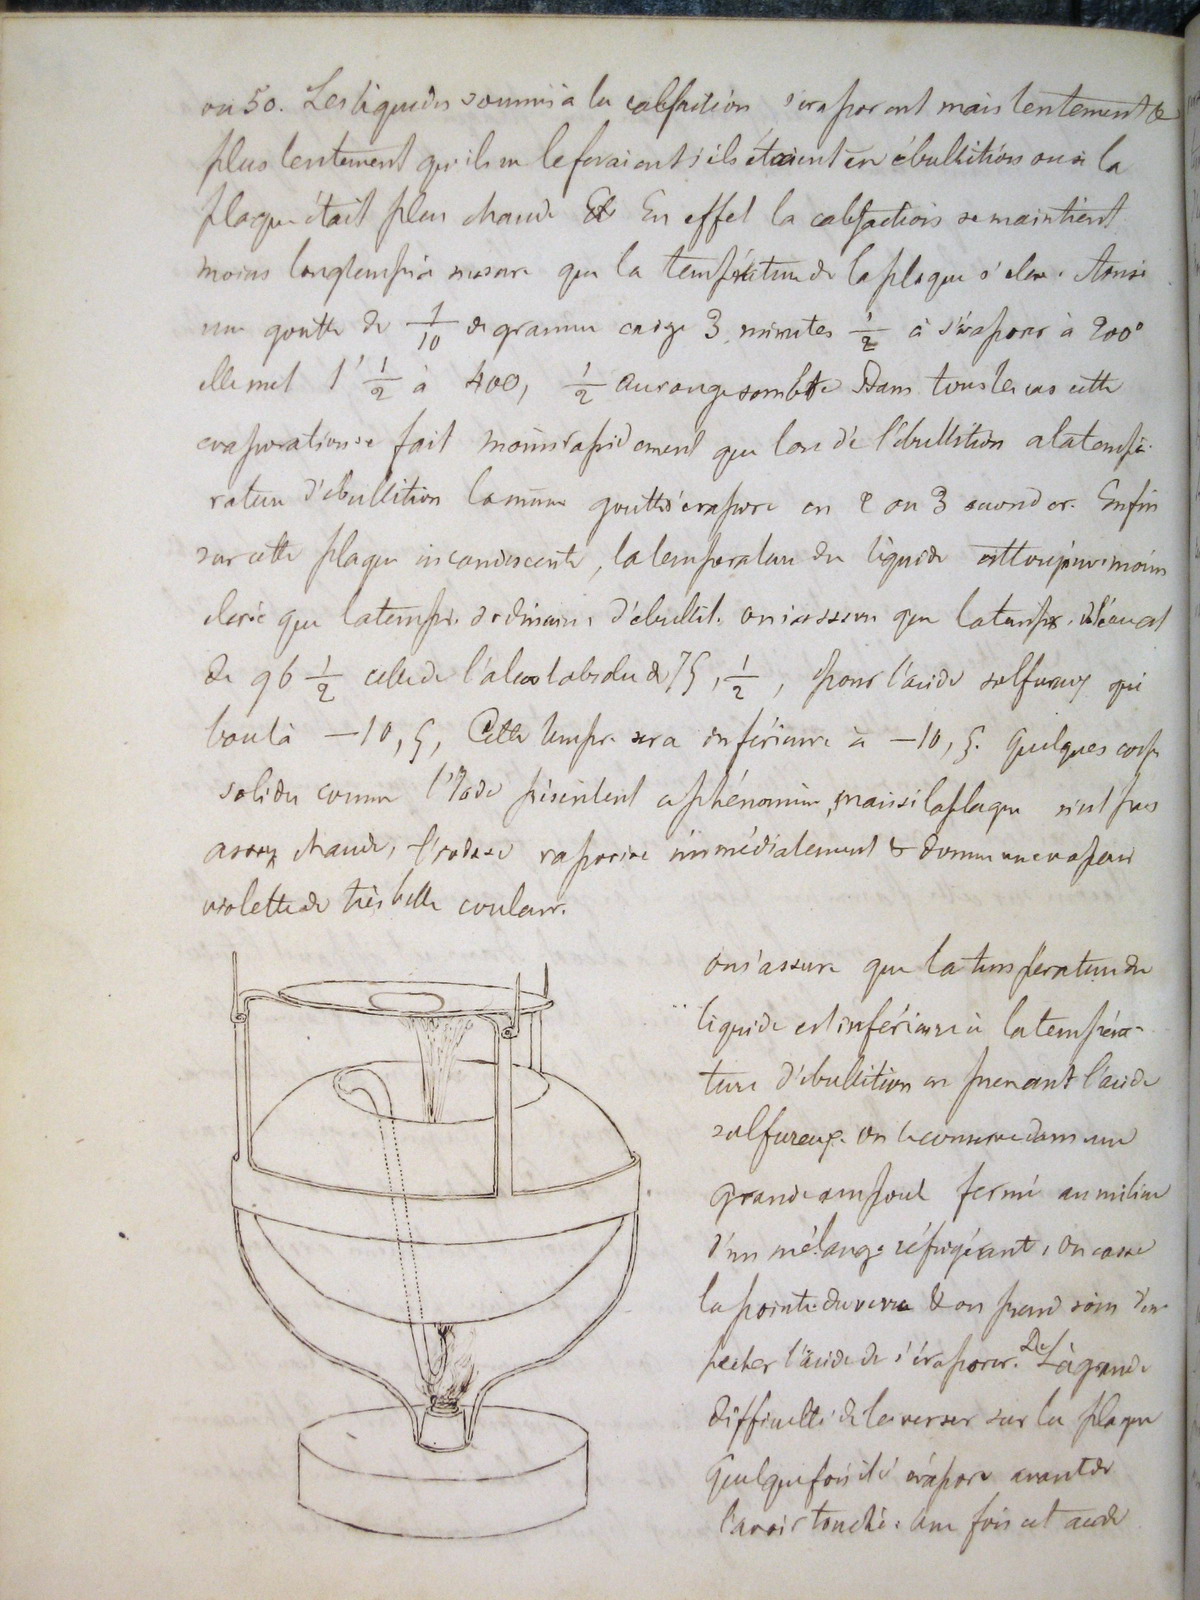 ou 50. Les liquides soumis à la caléfaction s'evaporent mais lentement &
plus lentement qu'ils ne le feraient s'ils étaient en ébullition ou si la
plaque était plus chaude En effet la caléfaction se maintient
moins longtemps à mesure que la température de la plaque s'eleve. Ainsi
une goutte de 1/10 de gramme exige 3 minutes 1/2 à s'évaporer à 200°
elle met 1' 1/2 à 400, 1/2 au rouge sombre Dans tous les cas cette
evaporation se fait moins rapidement que lors de l'ébullition a la tempé-
rature d'ébullition la même goutte s'évapore en 2 ou 3 secondes. Enfin
sur cette plaque incandescente, la temperature du liquide est toujours moins
élevée que la tempé. ordinaire d'ébullit. on s'assure que la temp. de l'eau est
de 96 1/2 celle de l'alcool absolu de 75, 1/2, pour l'acide sulfureux qui
bout à -10,5, Cette tempe. sera inférieure à -10,5. Quelques corps
solides comme l'Iode présentent ce phénomène, mais si la plaque n'est pas
assez chaude, l'iode se vaporise immédiatement & donne une vapeur
violette de très belle couleur.
on s'assure que la température du
liquide est inférieure à la tempéra-
ture d'ébullition en prenant l'acide
sulfureux. on le conserve dans une
grande ampoule fermé au milieu
d'un mélange réfrigérant, on casse
la pointe du verre & on prend soin d'em-
pecher l'acide de s'évaporer. De Là grande
difficulté de le verser sur la plaque
Quelquefois il s'évapore avant de
l'avoir touché. Une fois cet acide